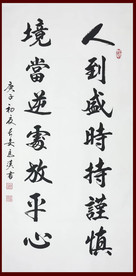 人到盛時持謹慎
境當逆處放平心
庚子初夏
書